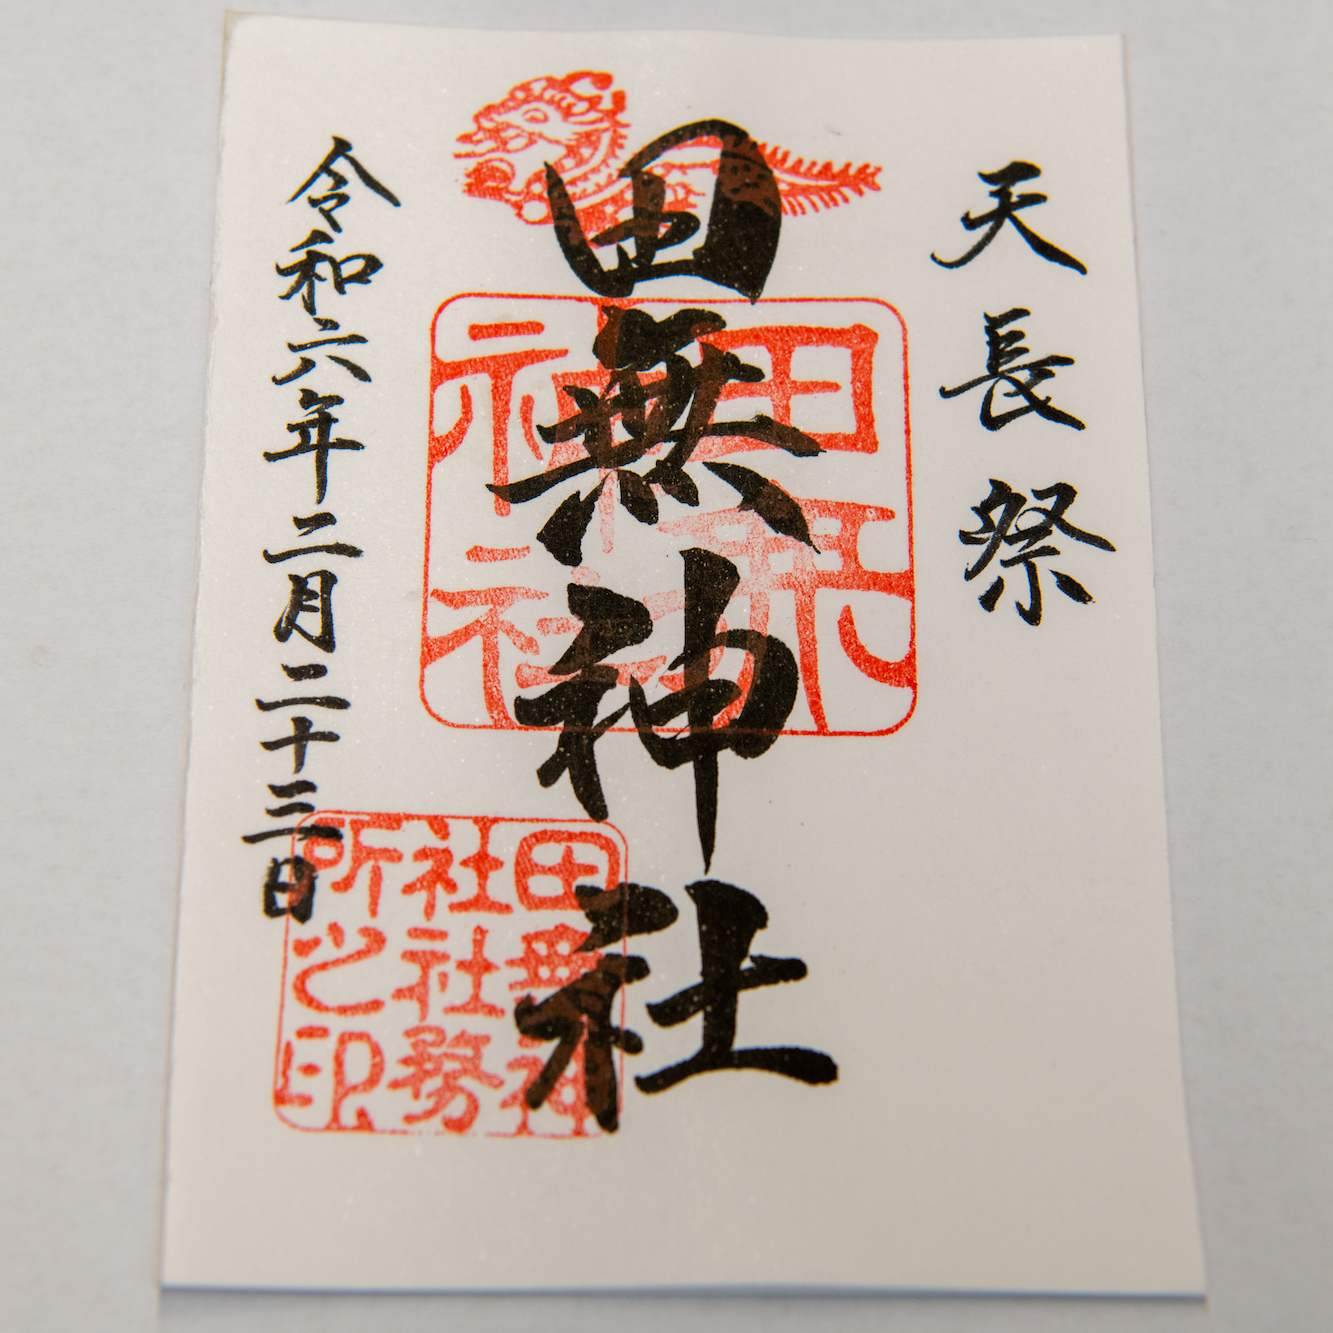 天長祭
田無神社
田無神社
田無神
社社務
所之印
令和六年二月二十三日